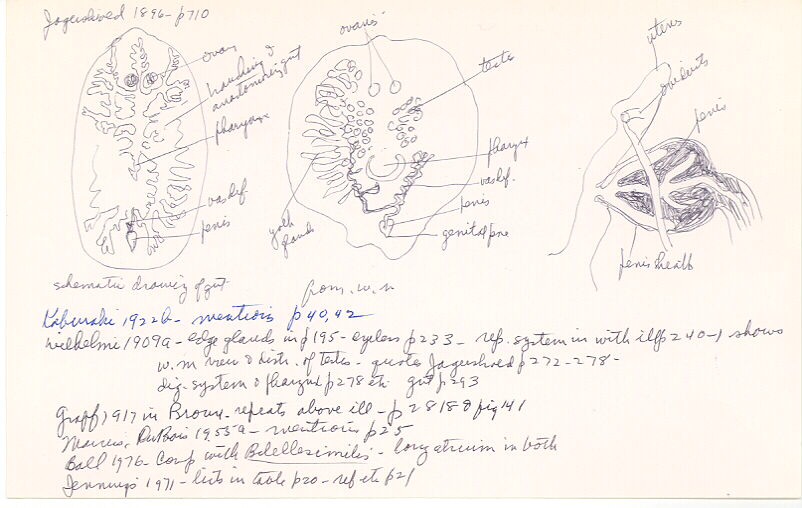 Jagerskiold 1896 - p710
ovary
branching &
anastomosing gut
pharynx
vas def
penis
schematic drawing of gut
ovaries
testes
pharynx
vas def.
penis
genital pore
yolk
glands
from w.m
uterus
oviducts
penis
penis sheath
Kaburaki 1922b - mentions p40,42
Wilhelmi 1909a - edge glands in p195 - eyeless p233 - rep. system in with ill p240-1 shows
w.m view & distr. of testes - quotes Jagerskiold p272-278 -
dig. system & pharynx p278 etc gut p293
Graff 1917 in Bronn - repeats above ill - p2818 & fig 141
Marcus, DuBois 1955a - mentions p25
Ball 1976 - Comp with Bdellasimilis - long atrium in both
Jennings 1971 - lists in table p20 - ref etc p21